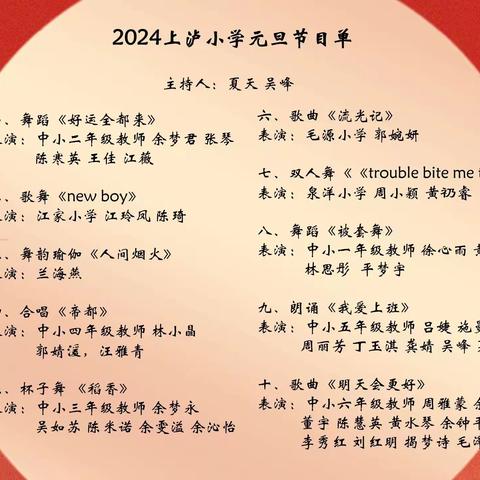 2024上泸小学元旦节目单
主持人：夏天 吴峰
、舞蹈《好运全都来》
演：中小二年级教师 余梦君 张琴
陈寒英 王佳 江薇
、歌舞《new boy》
演：江家小学 江玲凤 陈琦
、舞韵瑜伽《人间烟火》
演：兰海燕
、合唱《帝都》
演：中小四年级教师 林小晶
郭婧湲，汪雅青
、杯子舞 《稻香》
演：中小三年级教师 余梦永
吴如苏 陈米诺 余雯溢 余沁怡
六、歌曲《流光记》
表演：毛源小学 郭婉妍
七、双人舞《《trouble bite me
表演：泉洋小学 周小颖 黄礽睿
八、舞蹈《被套舞》
表演：中小一年级教师 徐心雨
林思彤 平梦宇
九、朗诵《我爱上班》
表演：中小五年级教师 吕婕 施
周丽芳 丁玉淇 龚婧 吴峰
十、歌曲《明天会更好》
表演：中小六年级教师 周雅蒙
董宇 陈慧英 黄水琴 余钟
李秀红 刘红明 揭梦诗 毛